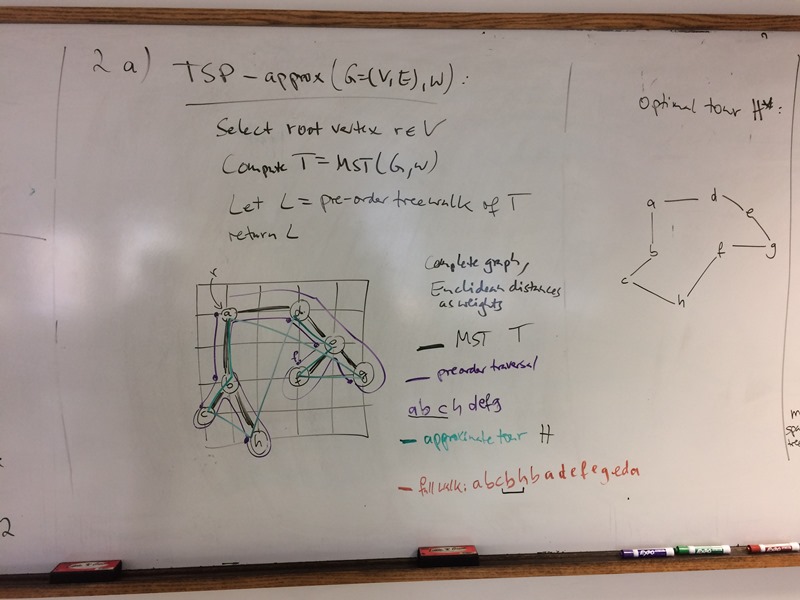 2 a) TSP-approx(G=(V,E),w):
Select root vertex r∈V
Compute T=MST(G,w)
Let L = pre-order treewalk of T
return L
r
a
d
e
f
g
b
c
h
Complete graph,
Euclidean distances
as weights
— MST T
— preorder traversal
abchdefg
— approximate tour H
— full walk: abcbhbadefegeda
Optimal tour H*:
a d e
b f g
c h
2
EXPO